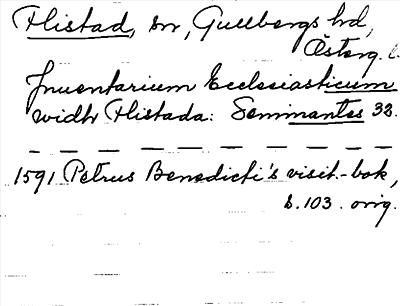 Flistad, sn, Gullbergs hd,
Österg. l.
Inventarium Ecclesiasticum
widh Flistada: Seminantes 32.
1591 Petrus Benedicti's visit.-bok,
s. 103. orig.